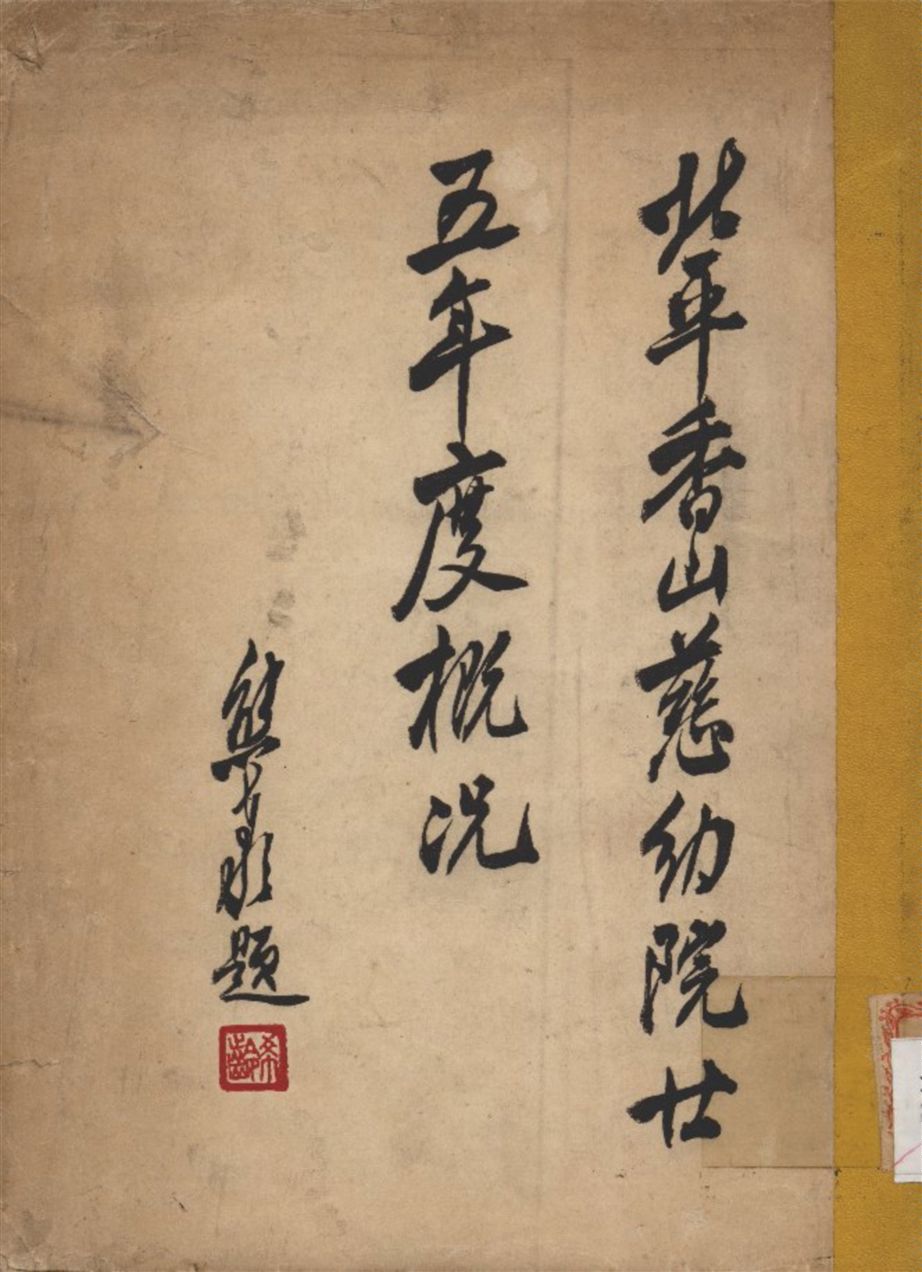 北平香山慈幼院廿
五年度概况
熊希齡題
希齡